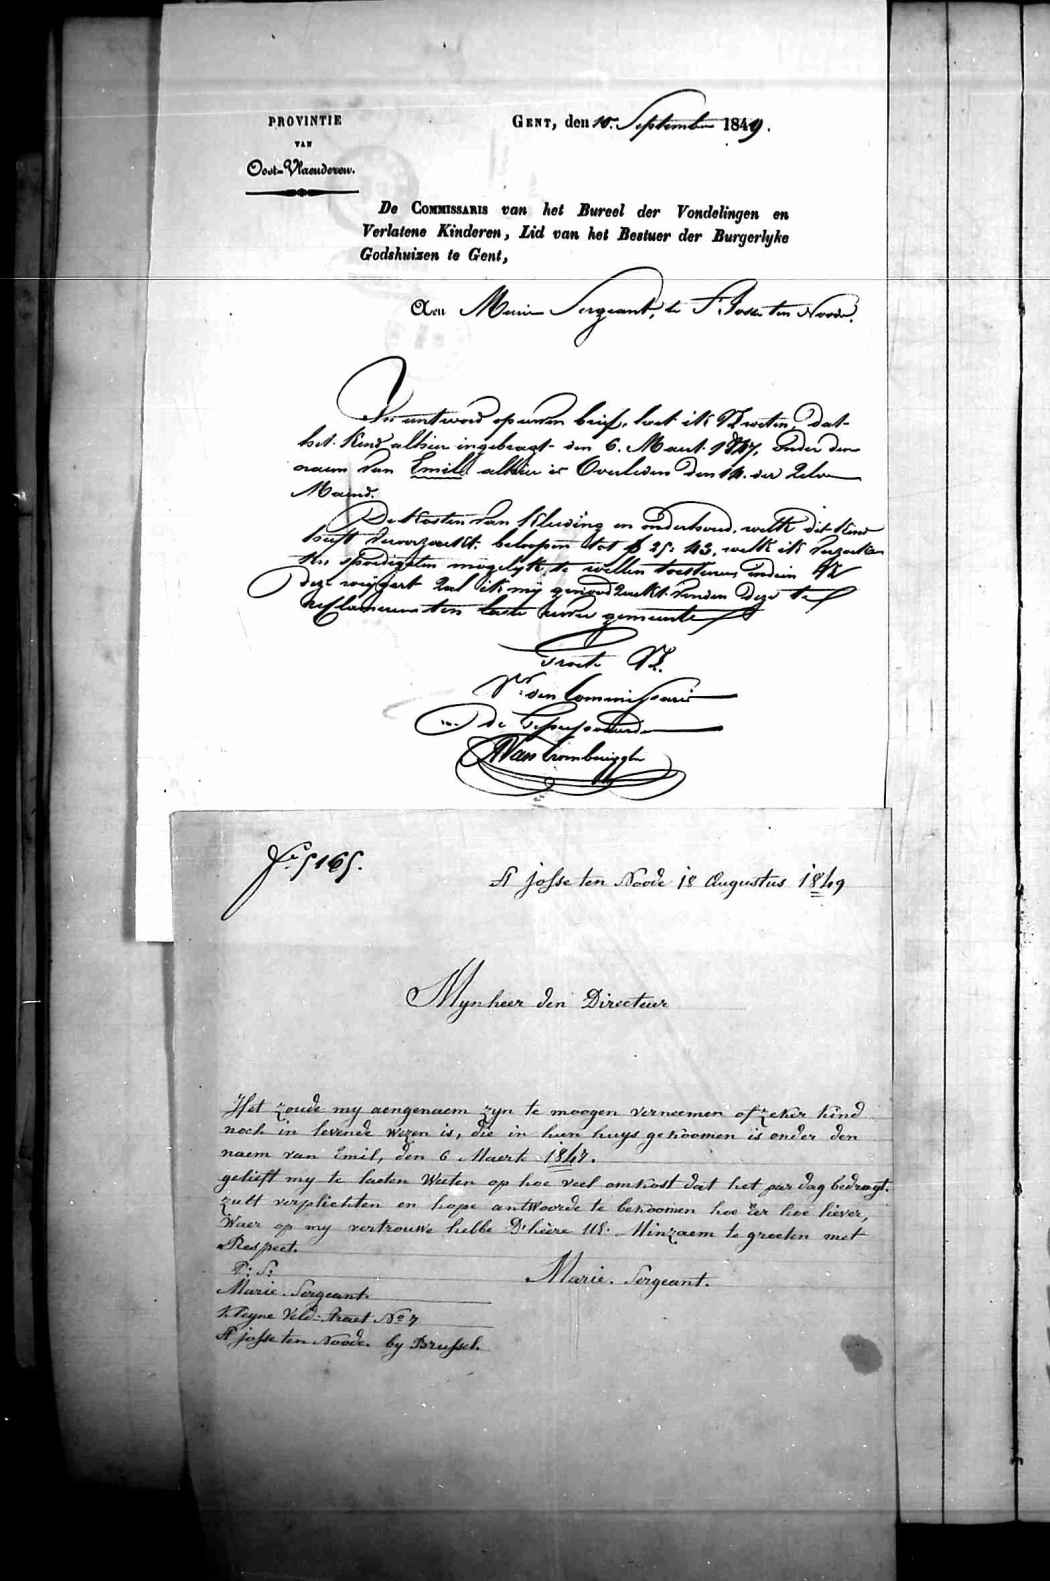 PROVINTIE
VAN
Oost-Vlaenderen.
GENT, den 10. September 1849.
De COMMISSARIS van het Bureel der Vondelingen en
Verlatene Kinderen, Lid van het Bestuer der Burgerlyke
Godshuizen te Gent,
Aen Marie Sergeant, te St. Josse ten Noode.
In antwoord op uwen brief, laet ik UE weten, dat
het kind alhier ingebragt den 6. Maert 1847, onder den
naem van Emil alhier is Overleden den 14. der zelve
Maend.
De Kosten van Kleeding en onderhoud, welke dit kind
heeft veroorzaekt beloopen tot fr 25: 43, welk ik verzoeke
spoedigsten mogelyk te willen toesturen indien UE
deze weigert zal ik my genoodzaekt vinden deze te
reclameren ten laste uwer gemeente
Groete UE.
Vr. den Commissaris
De Gesuspendeerde
Van Crombrugghe
Fr. 5165.
St josse ten Noode 18 Augustus 1849
Mynheer den Directeur
Het zoude my aengenaem zyn te moogen verneemen of zeker kind
noch in levende wezen is, die in hun huys gekoomen is onder den
naem van Emil, den 6 Maert 1847.
gelieft my te laeten Weeten op hoe veel omkost dat het par dag bedraegt.
zult verplichten en hope antWoorde te bekoomen hoe eer hoe liever,
Waer op my vertrouwe hebbe D'heere UE. Minzaem te groeten met
Respect.
P: S:
Marie. Sergeant.
Marie Sergeant.
Kleyne Veld-Straet No 7
St josse ten Noode. by Brussel.